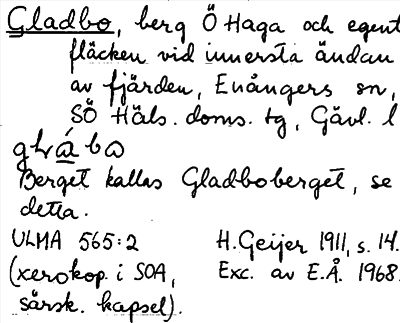 Gladbo, berg Ö Haga och egent
fläcken vid innersta ändan
av fjärden, Enångers sn,
SÖ Häls. doms. tg, Gävl. l
Berget kallas Gladboberget, se
detta.
ULMA 565:2 H. Geijer 1911, s. 14.
(xerokop. i SOA, Exc. av E.Å. 1968.
särsk. kapsel).